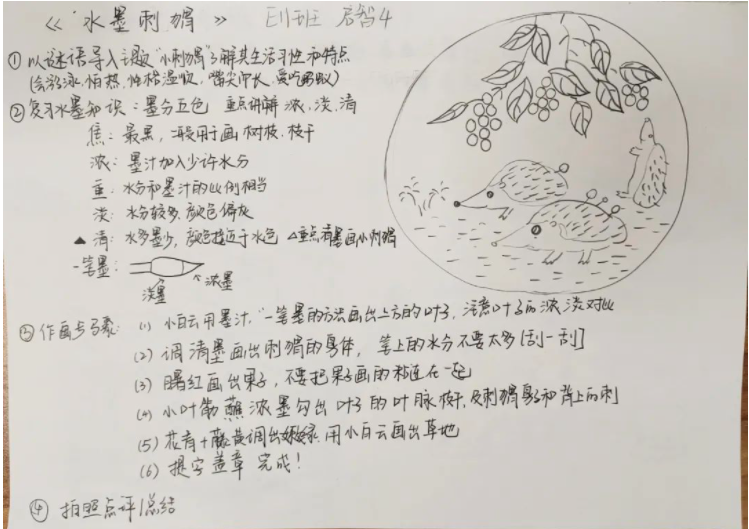 《水墨刺猬》 E1班 启智4
① 以谜语导入主题"小刺猬"了解其生活习性和特点
(会游泳、怕热、性格温驯、嘴尖而长、爱吃
② 复习水墨知识：墨分五色 重点讲解 浓、淡、清
焦：最黑，一般用于画树枝、枝干
浓：墨汁加入少许水分
重：水分和墨汁的比例相当
淡：水分较多，颜色偏灰
▲ 清：水多墨少，颜色接近于水色 △重点清墨画小刺猬
一笔墨：
浓墨
淡墨
③ 作画步骤：(1) 小白云用墨汁，"一笔墨的方法画出上方的叶子，注意叶子的浓淡对比
(2) 调清墨画出刺猬的身体，笔上的水分不要太多[刮一刮]
(3) 曙红画出果子，不要把果子画的粘连在一起
(4) 小叶筋蘸浓墨勾出叶子的叶脉枝干，及刺猬身子和背上的刺
(5) 花青+藤黄调出嫩绿，用小白云画出草地
(6) 提字盖章 完成！
④ 拍照点评/总结